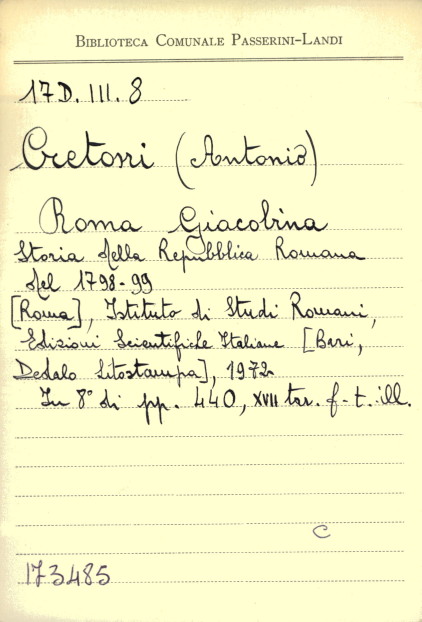 BIBLIOTECA COMUNALE PASSERINI-LANDI
17D. III. 8
Cretoni (Antonio)
Roma Giacobina
Storia della Repubblica Romana
del 1798-99
[Roma], Istituto di Studi Romani,
Edizioni Scientifiche Italiane [Bari,
Dedalo Litostampa], 1972
In 8° di pp. 440, XVII tav. f. t. ill.
C
173485